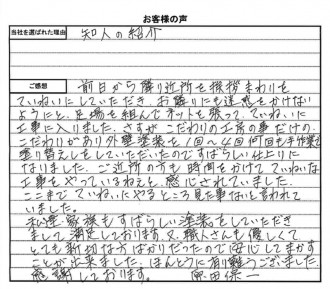 お客様の声
当社を選ばれた理由
知人の紹介
ご感想
前日から隣り近所を挨拶まわりを
ていねいにしていただき、お隣りにも迷惑をかけない
ようにと、足場を組んでネットを張って、ていねいに
工事に入りました。さすがこだわりの工房の事だけの
こだわりがあり外壁塗装を1回～4回何回も手作業で
塗り替えしをしていただいたのですばらしい仕上りに
なりました。ご近所の方も時間をかけてていねいな
工事をやっているねえと、感心されていました。
ここまでていねいにやるところ見た事ないと言われて
いました。
私達家族もすばらしい塗装をしていただき
まして満足しております。又、職人さんも優しくて
とても親切な方ばかりだったので安心してまかす
ことが出来ました。ほんとうに有難うございました。
感謝しております。